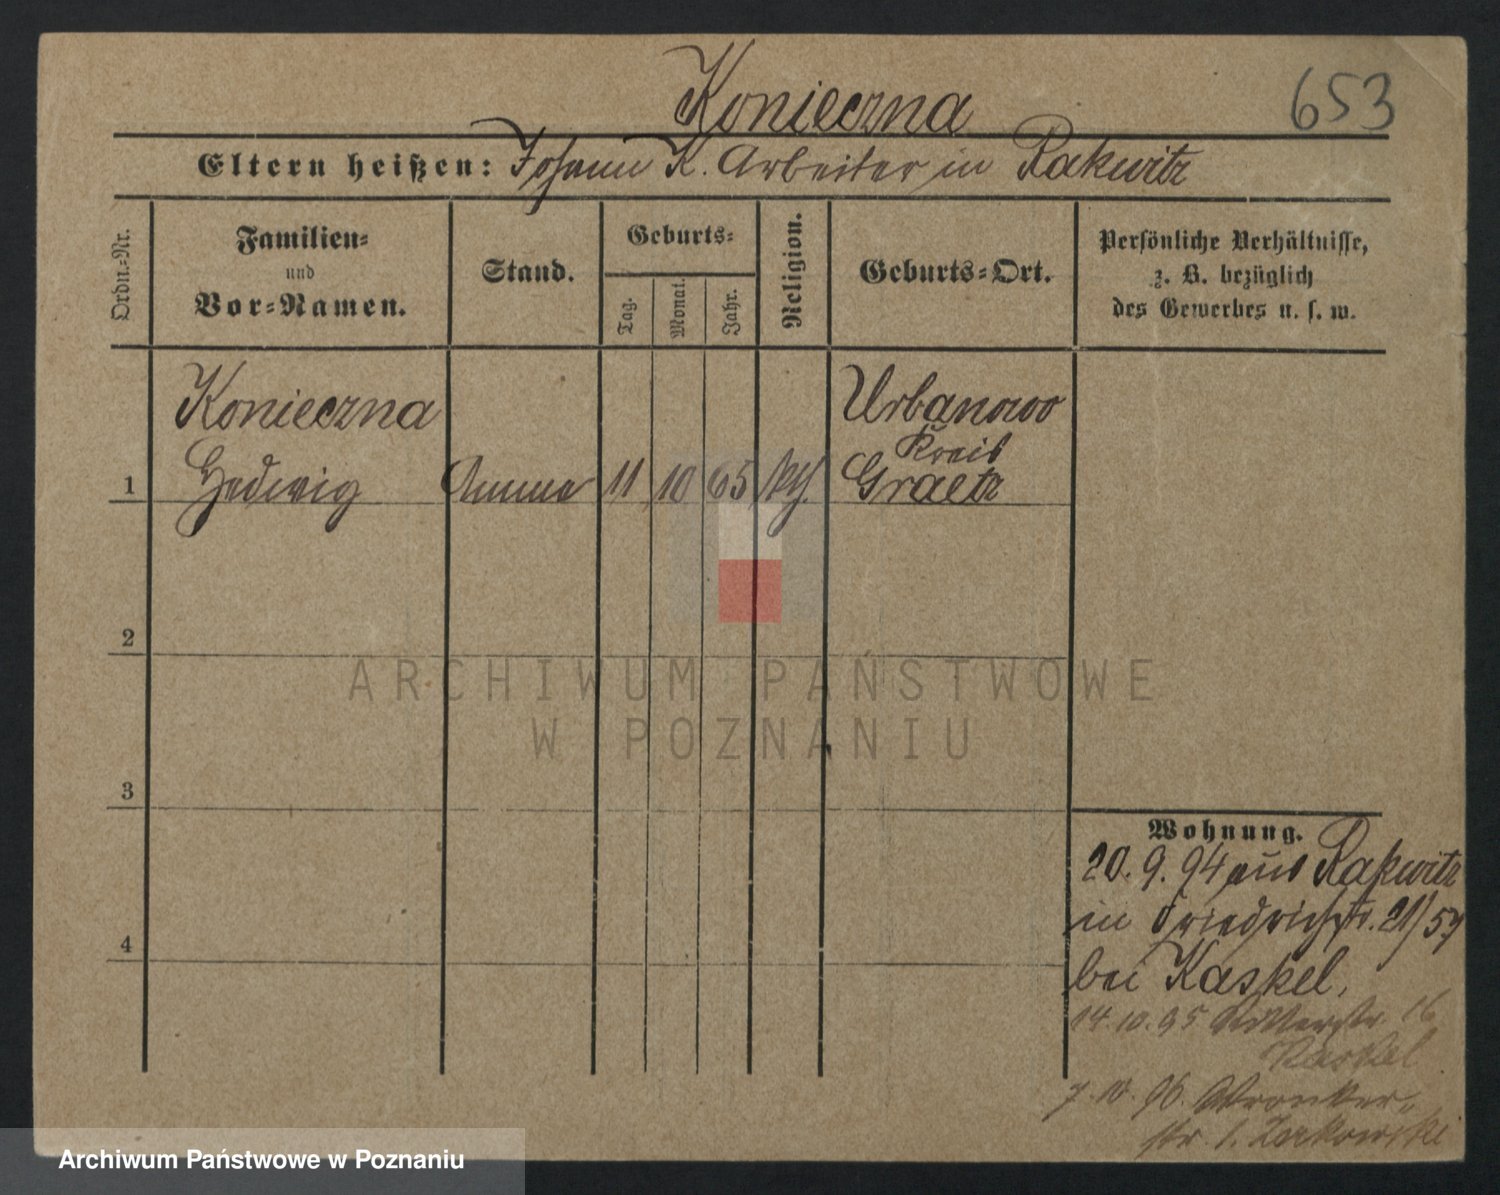 Konieczna
653
Eltern heißen: Johann K. Arbeiter in Rakwitz
Ordn.-Nr.
Familien-
und
Vor-Namen.
Stand.
Geburts-
Tag.
Monat.
Jahr.
Religion.
Geburts-Ort.
Persönliche Verhältnisse,
z. B. bezüglich
des Gewerbes u. s. w.
Konieczna
Hedwig
1
Amme
11
10
65
kth
Urbanowo
Kreis
Graetz
2
3
4
Wohnung.
20. 9. 94 aus Rakwitz
in Friedrichstr. 21/
bei Kaskel,
14. 10. 95 Ritterstr. 16
Kaskel
7. 10. 96. Wronker-
str. 1. Zerkowski
ARCHIWUM PAŃSTWOWE
W POZNANIU
Archiwum Państwowe w Poznaniu